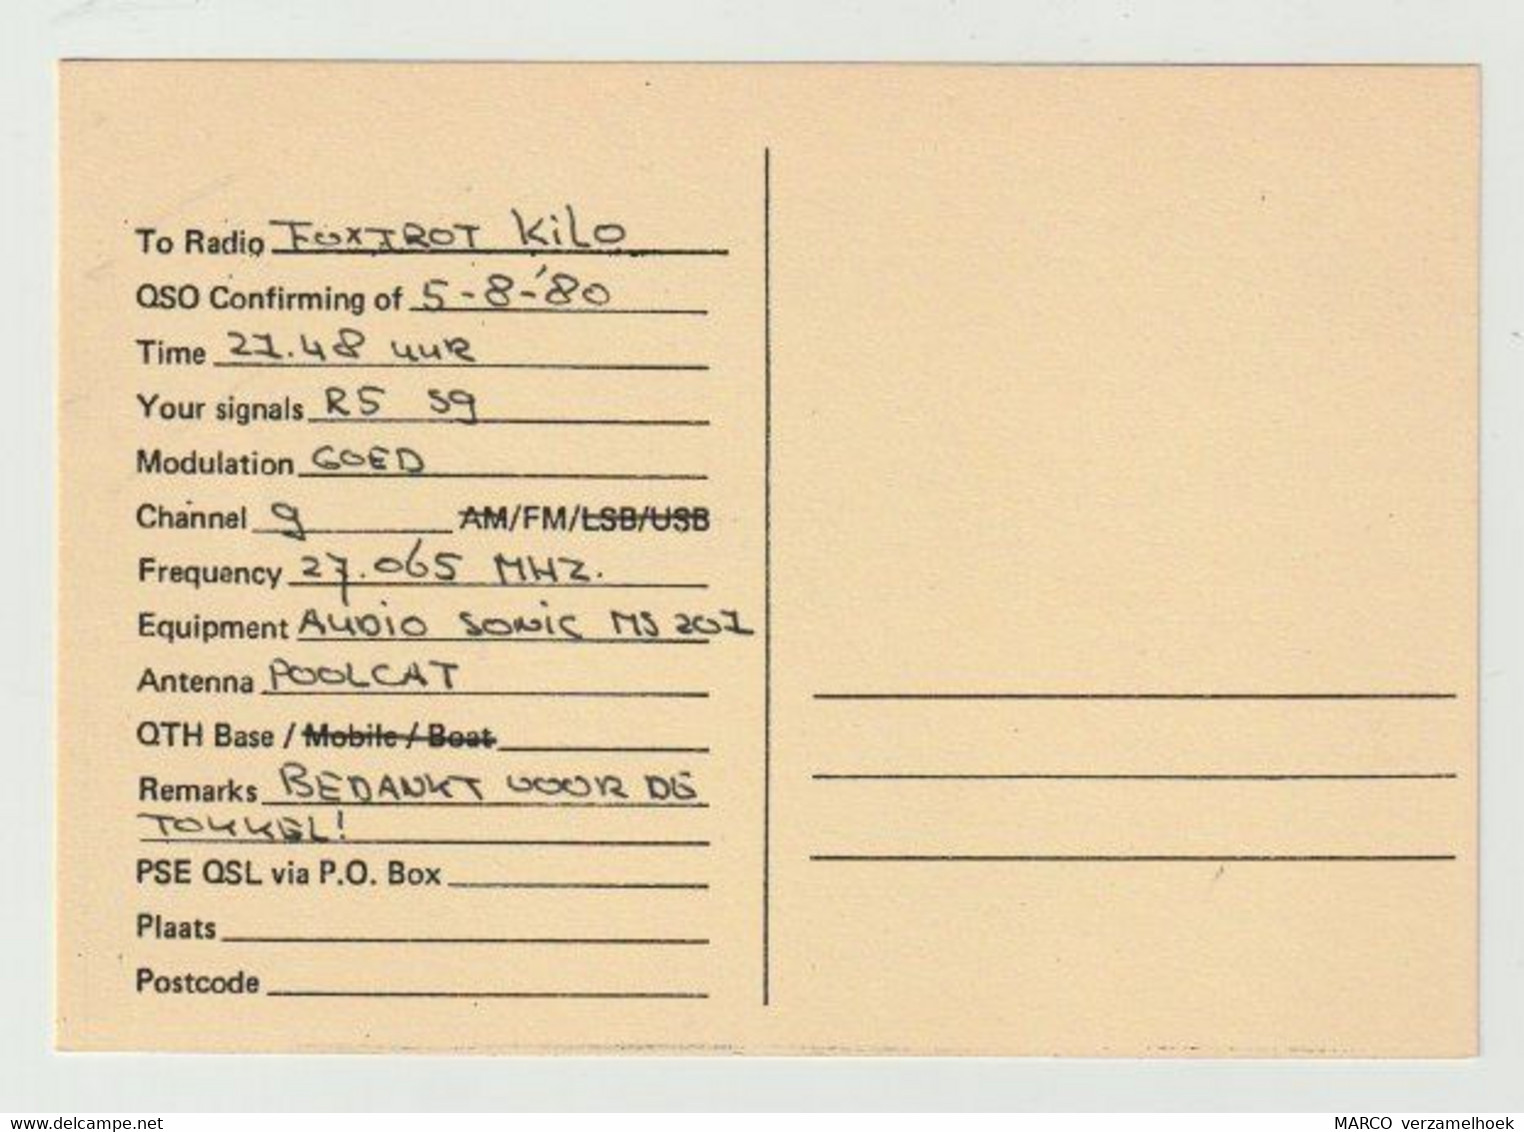 To Radio FOXTROT KiLO
QSO Confirming of 5-8-'80
Time 21.48 UUR
Your signals R5 S9
Modulation GOED
Channel 9 AM/FM/LSB/USB
Frequency 27.065 MHZ.
Equipment AUDiO SONiC MS 201
Antenna POOLCAT
QTH Base / Mobile / Boat
Remarks BEDANKT VOOR DE
TOKKEL!
PSE QSL via P.O. Box
Plaats
Postcode
www.delcampe.net
MARCO verzamelhoek